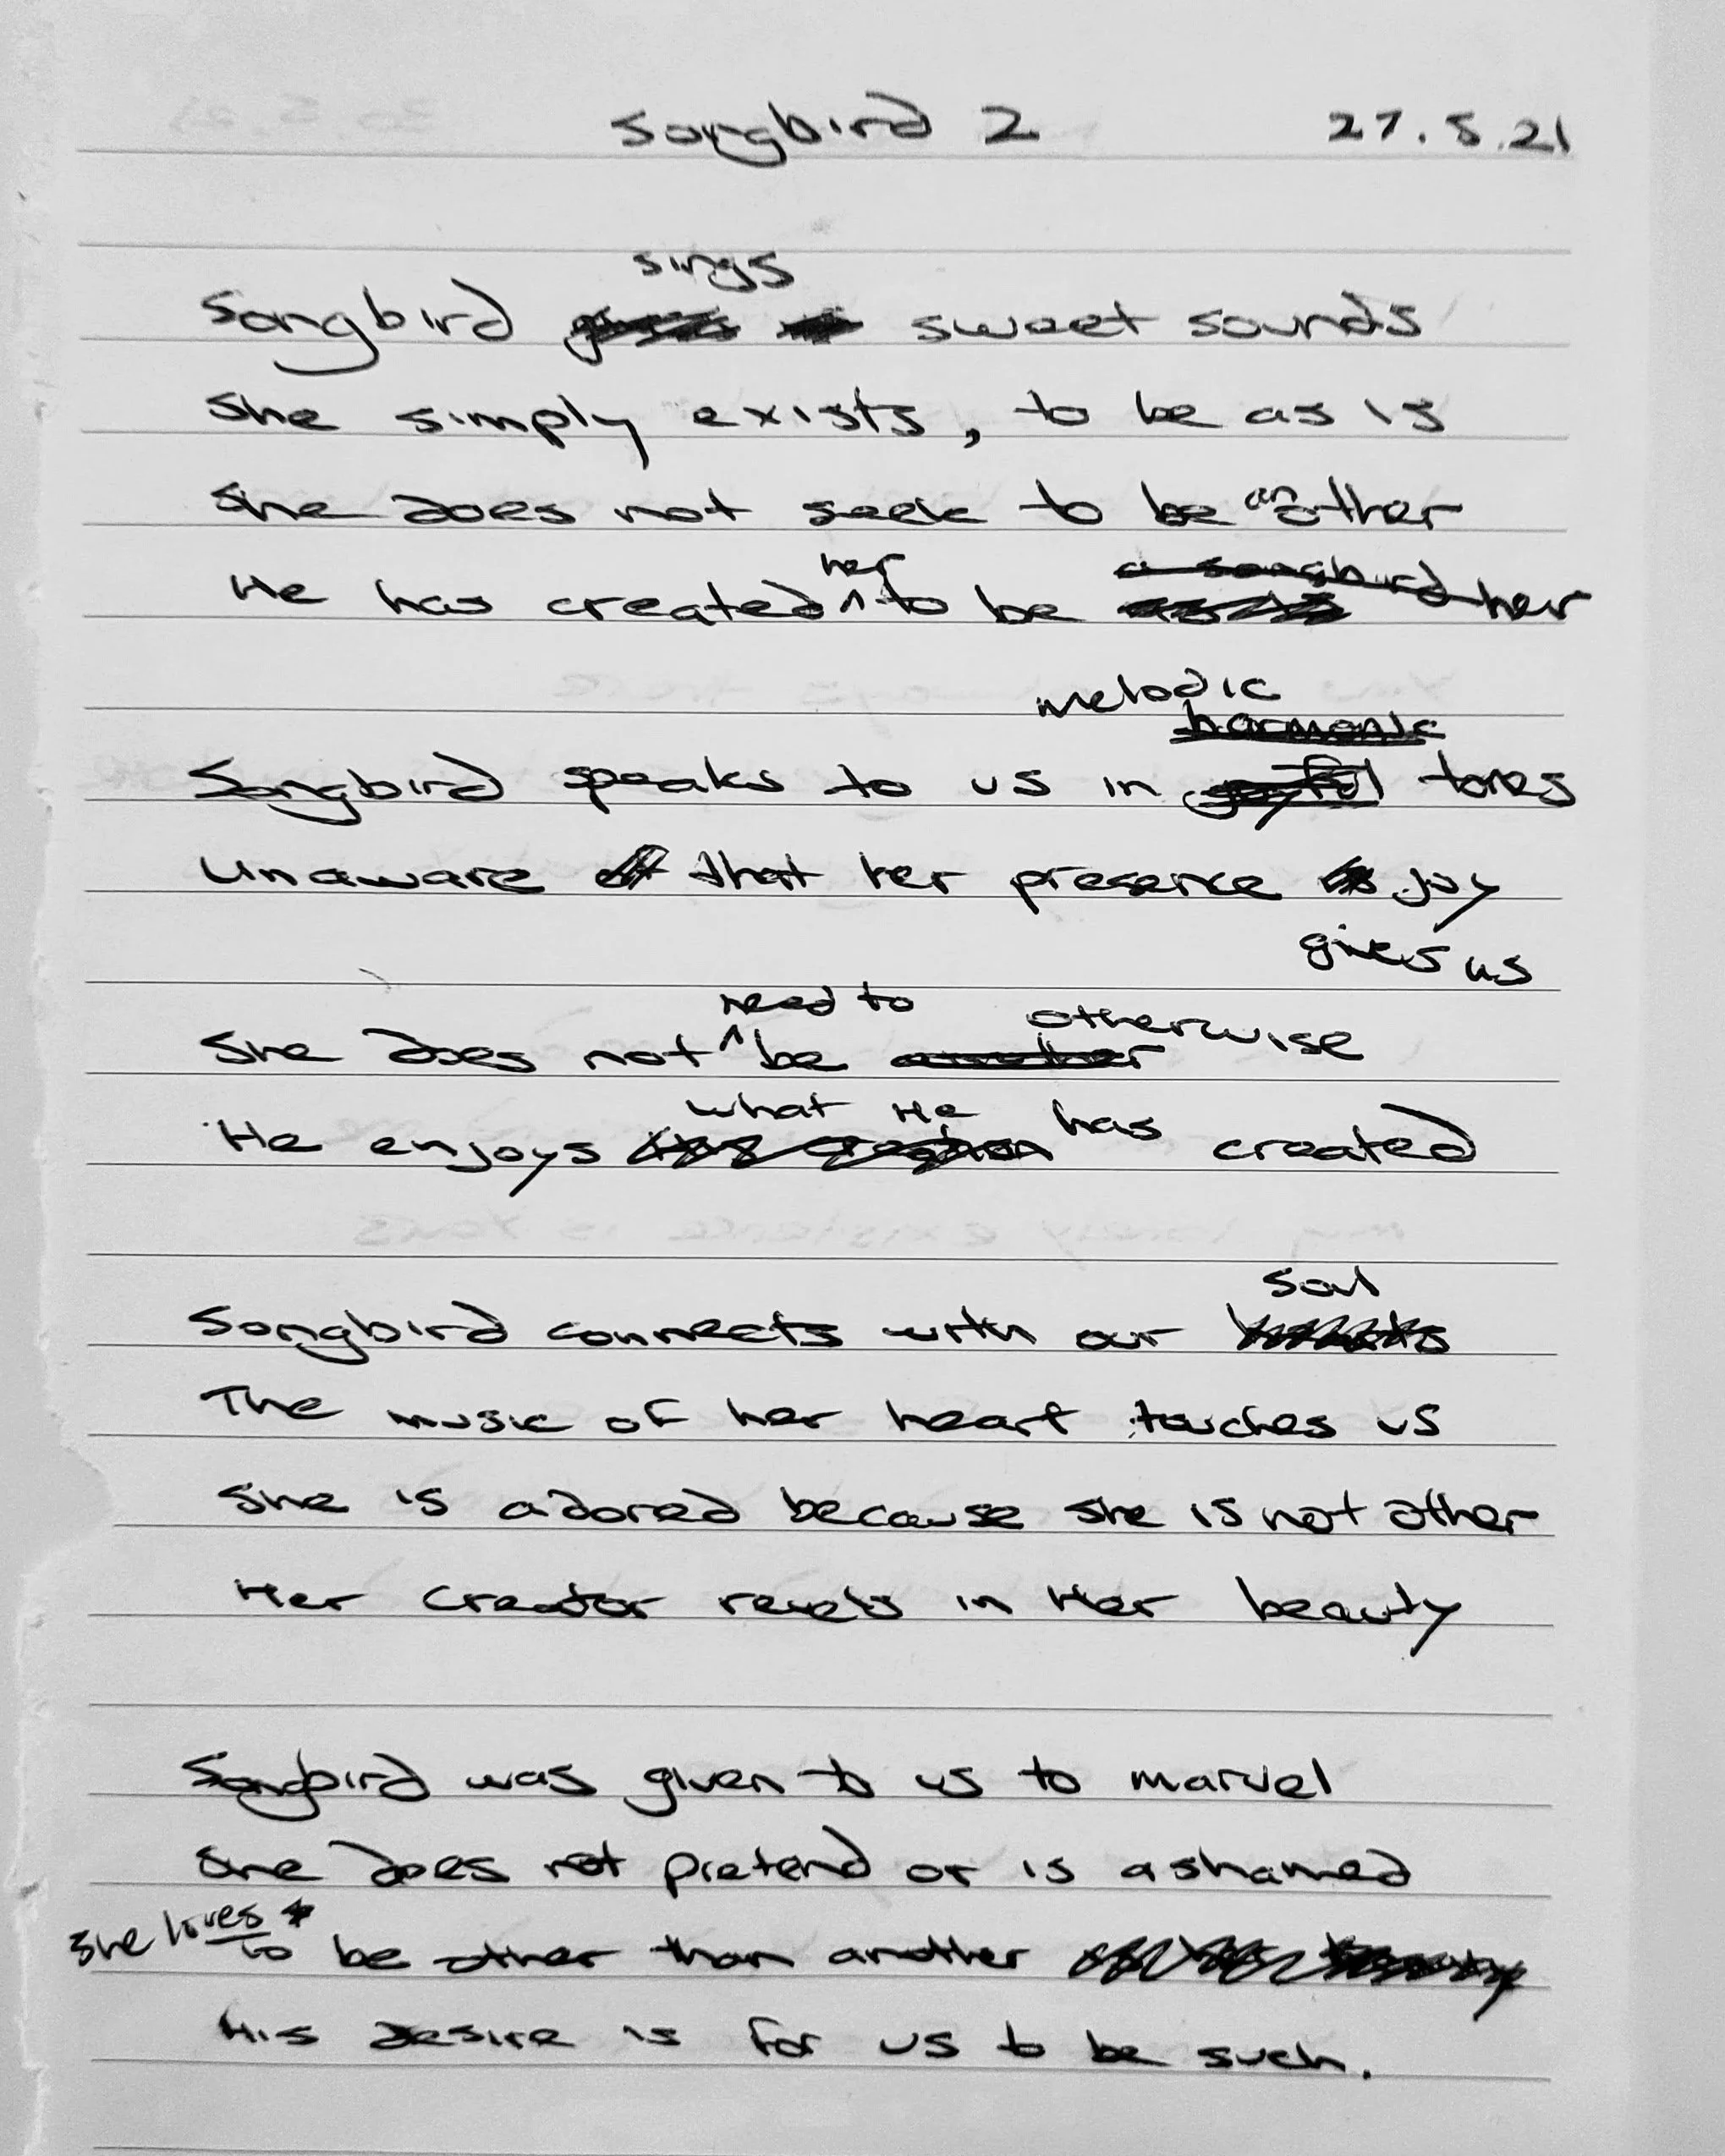 Songbird 2 27.5.21
sings
Songbird sweet sounds
She simply exists, to be as is
She does not seek to be another
her a songbird
He has created ^ to be her
melodic
harmonic
Songbird speaks to us in joyful tones
Unaware that her presence joy
gives us
need to otherwise
She does not ^ be another
what He has
He enjoys His creation created
soul
Songbird connects with our
The music of her heart touches us
She is adored because she is not other
Her Creator revels in Her beauty
Songbird was given to us to marvel
She does not pretend or is ashamed
She loves
to be other than another
His desire is for us to be such.